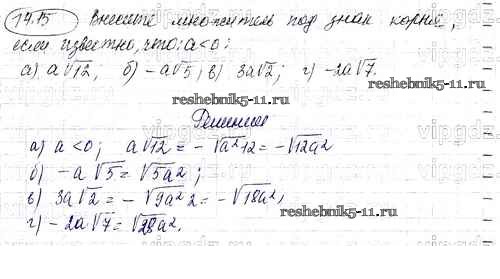 14.15 Внесите множитель под знак корня,
если известно, что: a<0:
а) a√12; б) -a√5; в) 3a√2; г) -2a√7.
reshebnik5-11.ru
Решение
а) a<0; a√12 = -√a²12 = -√12a²
б) -a√5 = √5a²;
в) 3a√2 = -√9a²2 = -√18a²;
reshebnik5-11.ru
г) -2a√7 = √28a².